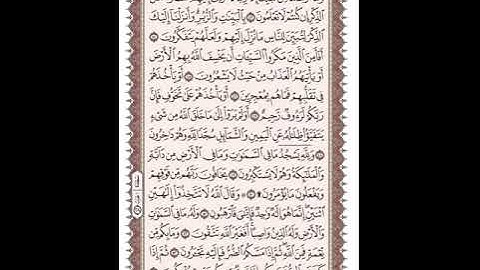 الذِّكْرِ إِن كُنتُمْ لَا تَعْلَمُونَ ﴿٤٣﴾ بِالْبَيِّنَاتِ وَالزُّبُرِ وَأَنزَلْنَا إِلَيْكَ
الذِّكْرَ لِتُبَيِّنَ لِلنَّاسِ مَا نُزِّلَ إِلَيْهِمْ وَلَعَلَّهُمْ يَتَفَكَّرُونَ ﴿٤٤﴾
أَفَأَمِنَ الَّذِينَ مَكَرُوا السَّيِّئَاتِ أَن يَخْسِفَ اللَّهُ بِهِمُ الْأَرْضَ
أَوْ يَأْتِيَهُمُ الْعَذَابُ مِنْ حَيْثُ لَا يَشْعُرُونَ ﴿٤٥﴾ أَوْ يَأْخُذَهُمْ
فِي تَقَلُّبِهِمْ فَمَا هُم بِمُعْجِزِينَ ﴿٤٦﴾ أَوْ يَأْخُذَهُمْ عَلَىٰ تَخَوُّفٍ فَإِنَّ
رَبَّكُمْ لَرَءُوفٌ رَّحِيمٌ ﴿٤٧﴾ أَوَلَمْ يَرَوْا إِلَىٰ مَا خَلَقَ اللَّهُ مِن شَيْءٍ
يَتَفَيَّؤُا ظِلَالُهُ عَنِ الْيَمِينِ وَالشَّمَائِلِ سُجَّدًا لِّلَّهِ وَهُمْ دَاخِرُونَ
﴿٤٨﴾ وَلِلَّهِ يَسْجُدُ مَا فِي السَّمَاوَاتِ وَمَا فِي الْأَرْضِ مِن دَابَّةٍ
وَالْمَلَائِكَةُ وَهُمْ لَا يَسْتَكْبِرُونَ ﴿٤٩﴾ يَخَافُونَ رَبَّهُم مِّن فَوْقِهِمْ
وَيَفْعَلُونَ مَا يُؤْمَرُونَ ۩ ﴿٥٠﴾ وَقَالَ اللَّهُ لَا تَتَّخِذُوا إِلَٰهَيْنِ
اثْنَيْنِ إِنَّمَا هُوَ إِلَٰهٌ وَاحِدٌ فَإِيَّايَ فَارْهَبُونِ ﴿٥١﴾ وَلَهُ مَا فِي السَّمَاوَاتِ
وَالْأَرْضِ وَلَهُ الدِّينُ وَاصِبًا أَفَغَيْرَ اللَّهِ تَتَّقُونَ ﴿٥٢﴾ وَمَا بِكُم مِّن
نِّعْمَةٍ فَمِنَ اللَّهِ ثُمَّ إِذَا مَسَّكُمُ الضُّرُّ فَإِلَيْهِ تَجْأَرُونَ ﴿٥٣﴾ ثُمَّ إِذَا